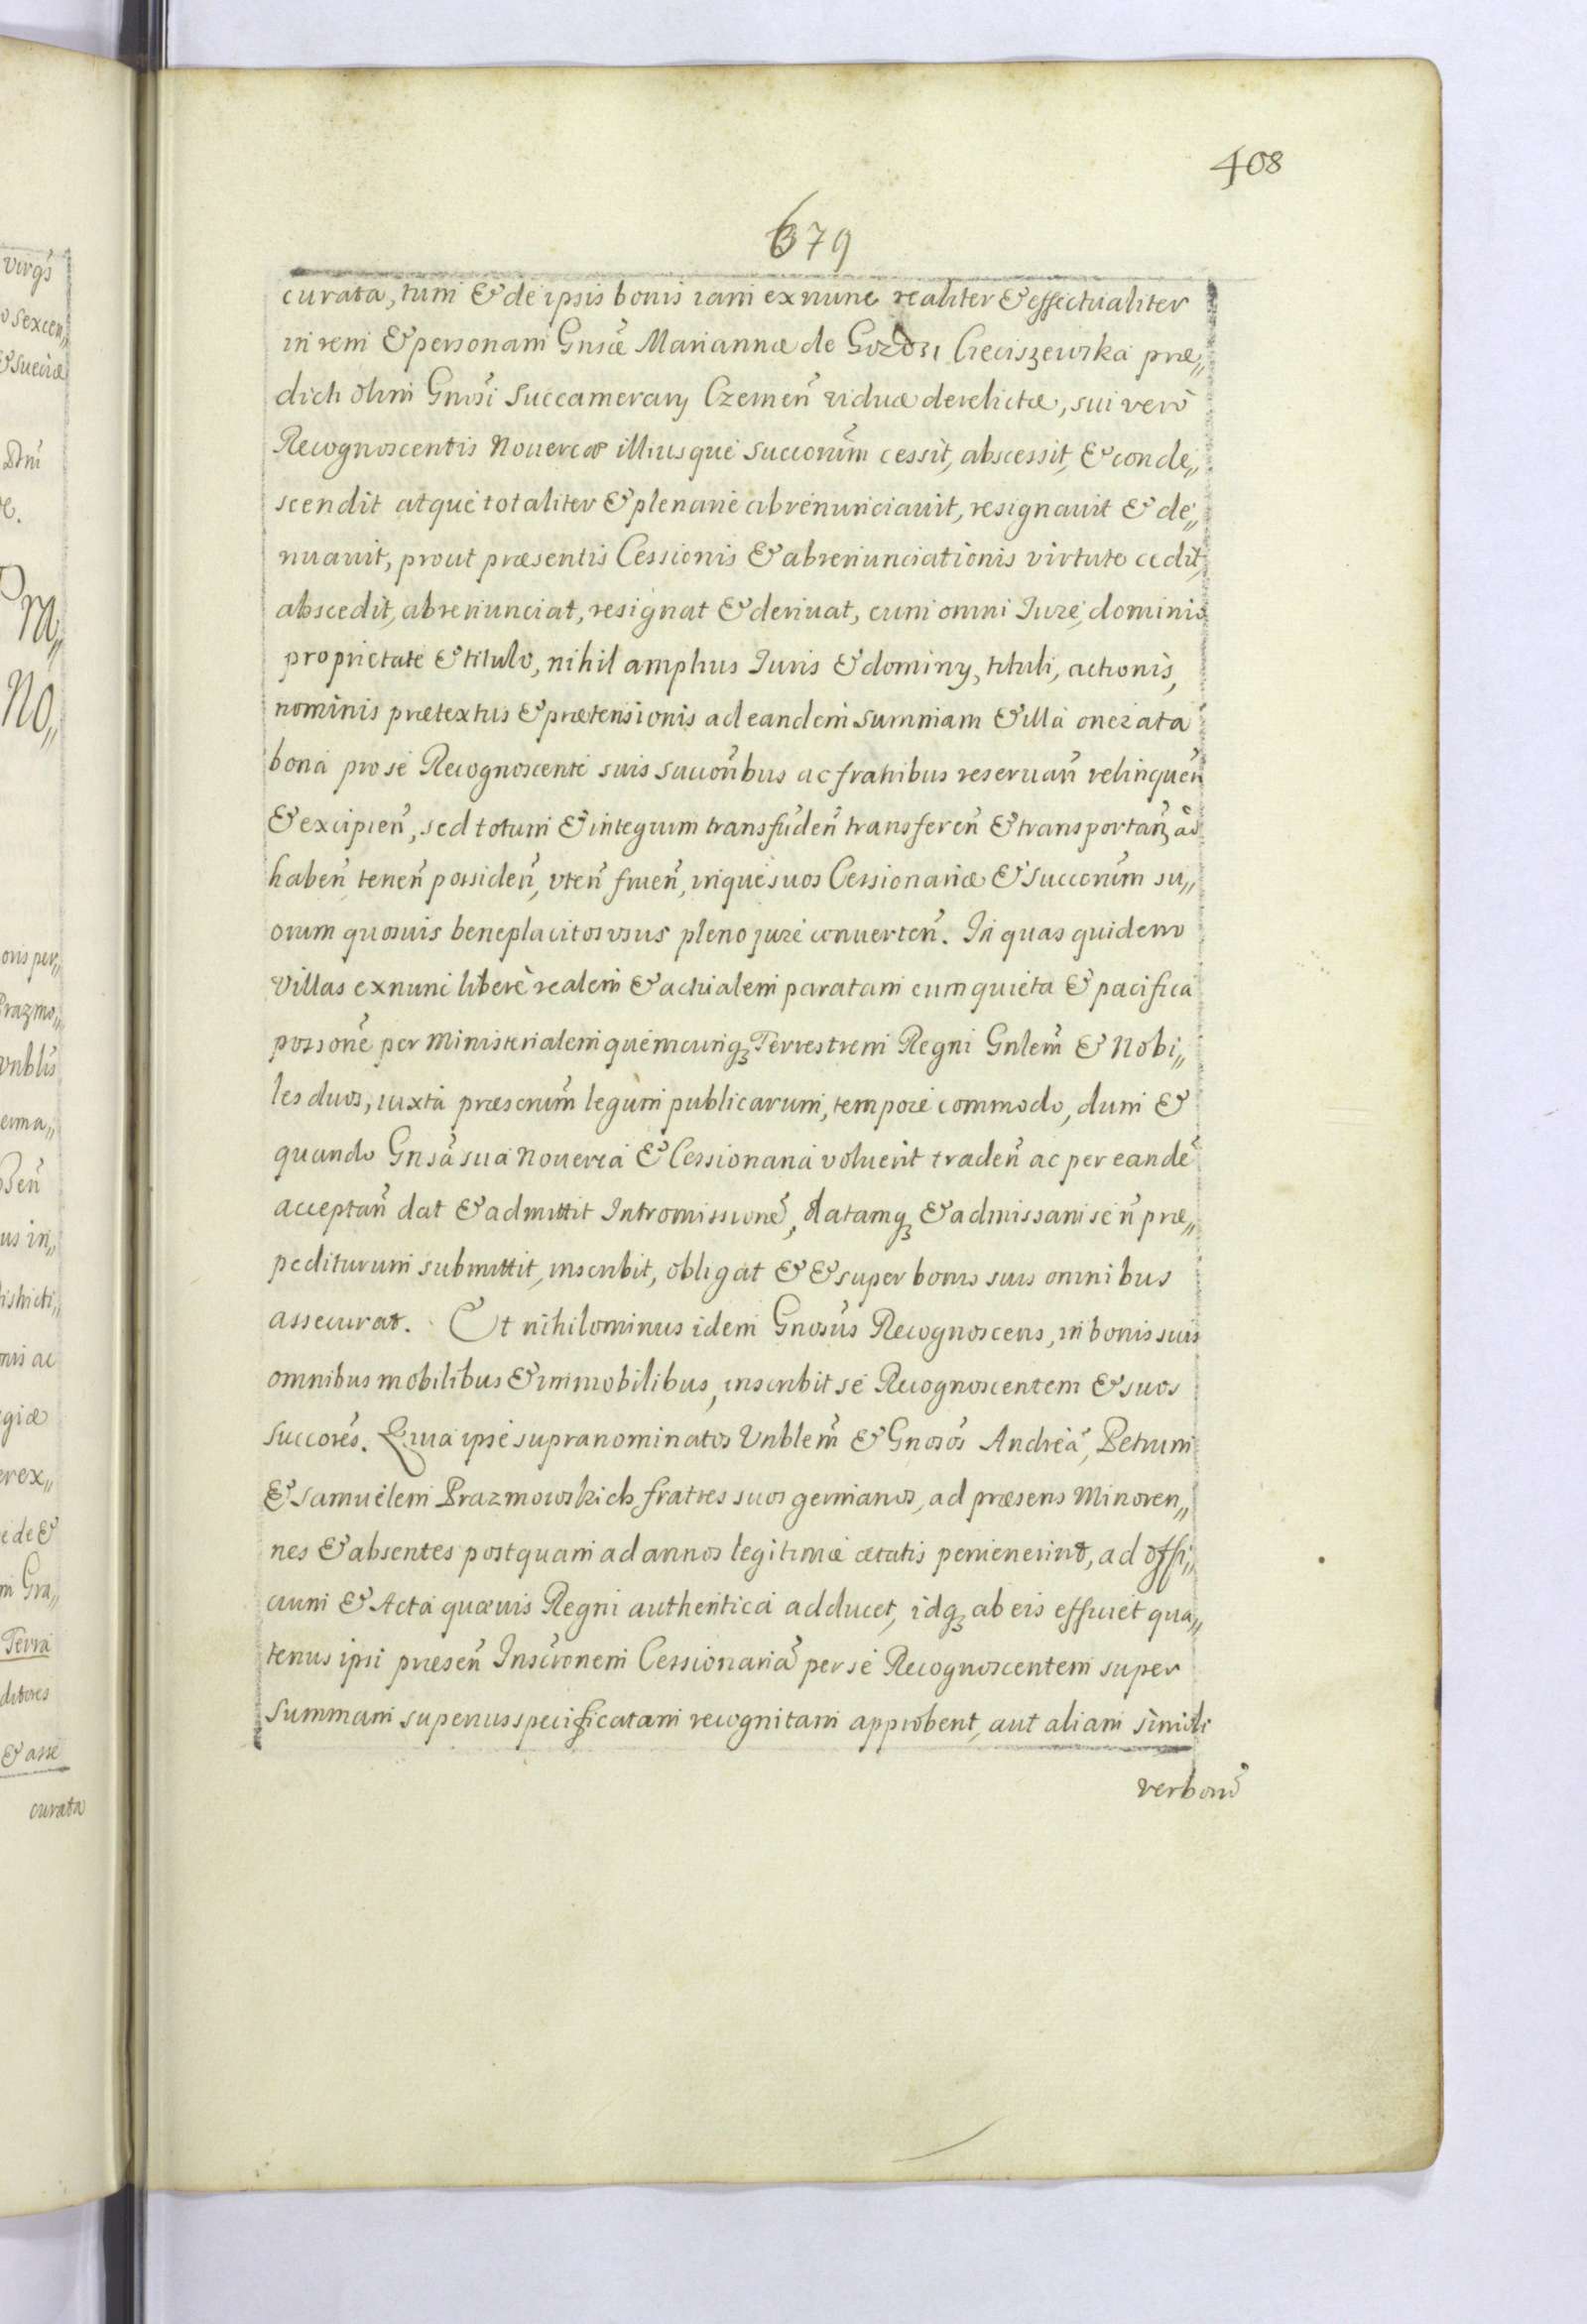 408
679
curata, tum & de ipsis bonis iam ex nunc realiter & effectualiter
in rem & personam Gnsæ Mariannæ de Gozdzi Cieciszewska præ„
dicti olim Gnosi Succamerarij Czernen̄ viduæ derelictæ, sui verò
Recognoscentis Nouercæ illiusque succorum̄ cessit, abscessit, & conde„
scendit atque totaliter & plenariè abrenunciauit, resignauit & de„
riuauit, prout præsentis Cessionis & abrenunciationis virtute cedit,
abscedit, abrenunciat, resignat & deriuat, cum omni Iure, dominio
proprietate & titulo, nihil amplius Iuris & dominij, tituli, actionis,
nominis prætextus & prætensionis ad eandem summam & illa onerata
bona pro se Recognoscente suis succorībus ac fratribus reseruan̄ relinquen̄
& excipien̄, sed totum & integrum transfūden̄ transferen̄ & transportan̄ ad
haben̄ tenen̄ possiden̄, vten̄ fruen̄, inque suos Cessionariæ & Succorum̄ su„
orum quosuis beneplacitos vsus pleno jure conuerten̄. In quas quidem
Villas ex nunc liberè realem & actualem paratam cum quieta & pacifica
possonē per Ministerialem quemcunq₃ Terrestrem Regni Gnlem̄ & Nobi„
les duos, iuxta præscrium̄ legum publicarum, tempore commodo, dum &
quando Gnsā sua Nouerca & Cessionaria voluerit traden̄ ac per eandē
acceptan̄ dat & admittit Intromissionē, datamq₃ & admissam se n̄ præ„
pediturum submittit, inscribit, obligat & & super bonis suis omnibus
assecurat. Et nihilominus idem Gnosūs Recognoscens, in bonis suis
omnibus mobilibus & immobilibus, inscribit se Recognoscentem & suos
succorēs. Quia ipse supranominatos Vnblem̄ & Gnosōs Andreā, Petrum
& Samuelem Prazmowskich fratres suos germanos, ad præsens Minoren„
nes & absentes postquam ad annos legitimæ ætatis peruenerint, ad offi„
cium & Acta quæuis Regni authentica adducet, idq₃ ab eis efficiet qua„
tenus ipsi præsen̄ Inscrīonem Cessionariā per se Recognoscentem super
summam superius specificatam recognitam approbent, aut aliam simili
verborū